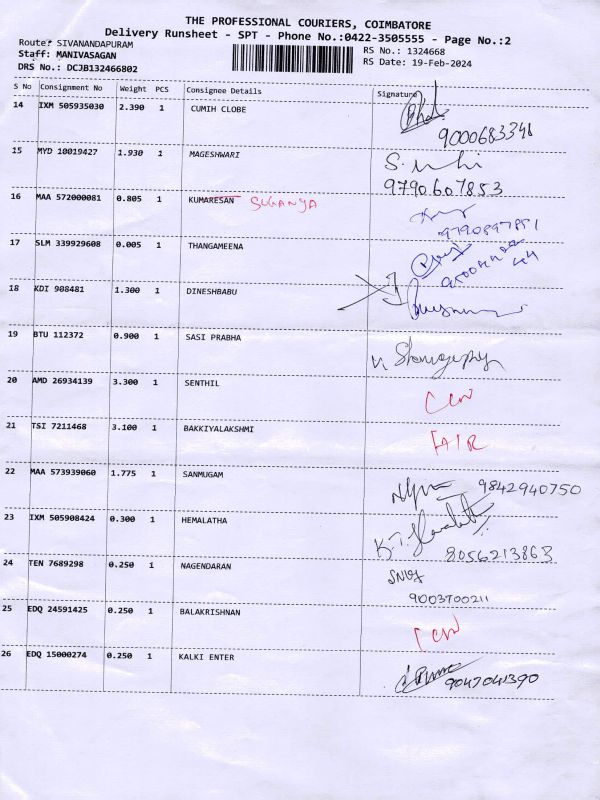 THE PROFESSIONAL COURIERS, COIMBATORE
Delivery Runsheet - SPT - Phone No.:0422-3505555 - Page No.:2
Route: SIVANANDAPURAM
RS No.: 1324668
Staff: MANIVASAGAN
RS Date: 19-Feb-2024
DRS No.: DCJB132466802
S No Consignment No Weight PCS Consignee Details Signature
14 IXM 505935030 2.390 1 CUMIH CLOBE
9000683346
15 MYD 10019427 1.930 1 MAGESHWARI
9790607853
16 MAA 572000081 0.805 1 KUMARESAN SUGANYA
9790897851
17 SLM 339929608 0.005 1 THANGAMEENA
18 KDI 908481 1.300 1 DINESHBABU
19 BTU 112372 0.900 1 SASI PRABHA
20 AMD 26934139 3.300 1 SENTHIL
21 TSI 7211468 3.100 1 BAKKIYALAKSHMI
22 MAA 573939060 1.775 1 SANMUGAM
9842940750
23 IXM 505908424 0.300 1 HEMALATHA
8056213863
24 TEN 7689298 0.250 1 NAGENDARAN
9003700211
25 EDQ 24591425 0.250 1 BALAKRISHNAN
26 EDQ 15000274 0.250 1 KALKI ENTER
9047041390